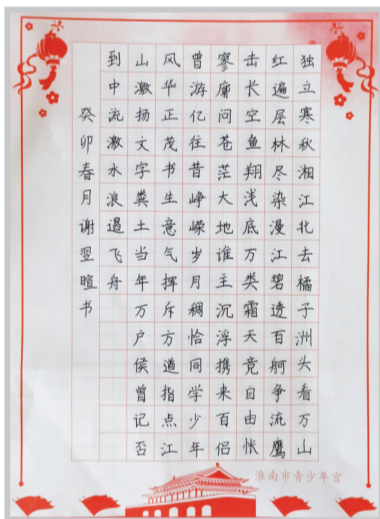 独立寒秋湘江北去橘子洲头看万山
红遍层林尽染漫江碧透百舸争流鹰
击长空鱼翔浅底万类霜天竞自由怅
寥廓问苍茫大地谁主沉浮携来百侣
曾游忆往昔峥嵘岁月稠恰同学少年
风华正茂书生意气挥斥方遒指点江
山激扬文字粪土当年万户侯曾记否
到中流激水浪遏飞舟
癸卯春月谢翌暄书
淮南市青少年宫